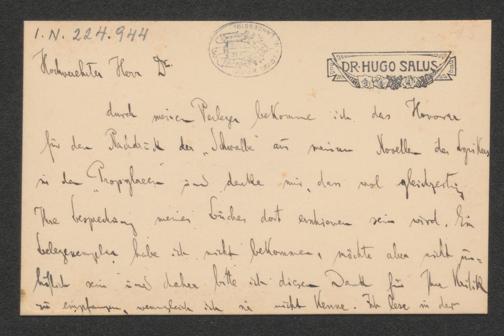 I. N. 224.944
DR. HUGO SALUS
Hochverehrter Herr Dr.
durch meinen Verleger bekomme ich das Honorar
für den Abdruck der „Schwalbe“ aus meinen Novellen des Lyrikers
in den „Propyläen“ und denke mir, dass wol gleichzeitig
Ihre Besprechung meines Buches dort erschienen sein wird. Ein
Belegexemplar habe ich nicht bekommen, möchte aber nicht un-
höflich sein und daher bitte ich diesen Dank für Ihre Kritik
zu empfangen, wenngleich ich sie nicht kenne. Ich lese in der